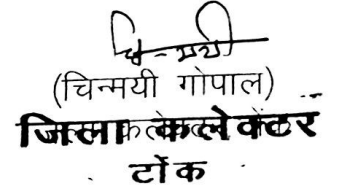 (चिन्मयी गोपाल)
जिला कलेक्टर
टोंक